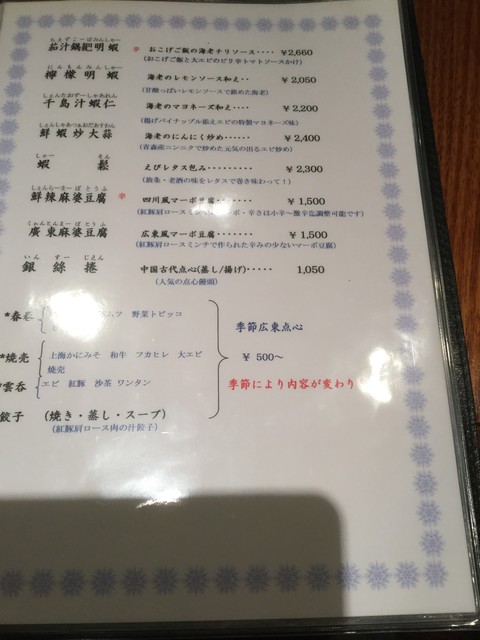 茄汁鍋粑明蝦 ※ おこげご飯の海老チリソース‥‥ ￥2,660
(おこげご飯と大エビのピリ辛トマトソースかけ)
にんもんみんしゃー
檸檬明蝦 海老のレモンソース和え‥ ￥2,050
(甘酸っぱいレモンソースで絡めた海老)
千島汁蝦仁 海老のマヨネーズ和え‥‥ ￥2,200
(揚げパイナップル添えエビの特製マヨネーズ味)
鮮蝦炒大蒜 海老のにんにく炒め‥‥‥ ￥2,400
(青森産ニンニクで炒めた元気の出るエビ炒め)
しゃー そん
蝦鬆 えびレタス包み‥‥‥‥‥ ￥2,300
(油条・老酒の味をレタスで巻き味わって！)
鮮辣麻婆豆腐 ※ 四川風マーボ豆腐‥‥‥‥ ￥1,500
(紅豚肩ロースミンチ ・辛さは小辛～激辛迄調整可能です)
廣東麻婆豆腐 広東風マーボ豆腐‥‥‥‥ ￥1,500
(紅豚肩ロースミンチで作られた辛みの少ないマーボ豆腐)
いん すー じえん
銀絲捲 中国古代点心(蒸し/揚げ)‥‥‥ 1,050
(人気の点心饅頭)
*春 野菜トビッコ
季節広東点心
*焼売 上海かにみそ 和牛 フカヒレ 大エビ
￥500～
焼売
雲呑 エビ 紅豚 沙茶 ワンタン
季節により内容が変わり
餃子 (焼き・蒸し・スープ)
(紅豚肩ロース肉の汁餃子)